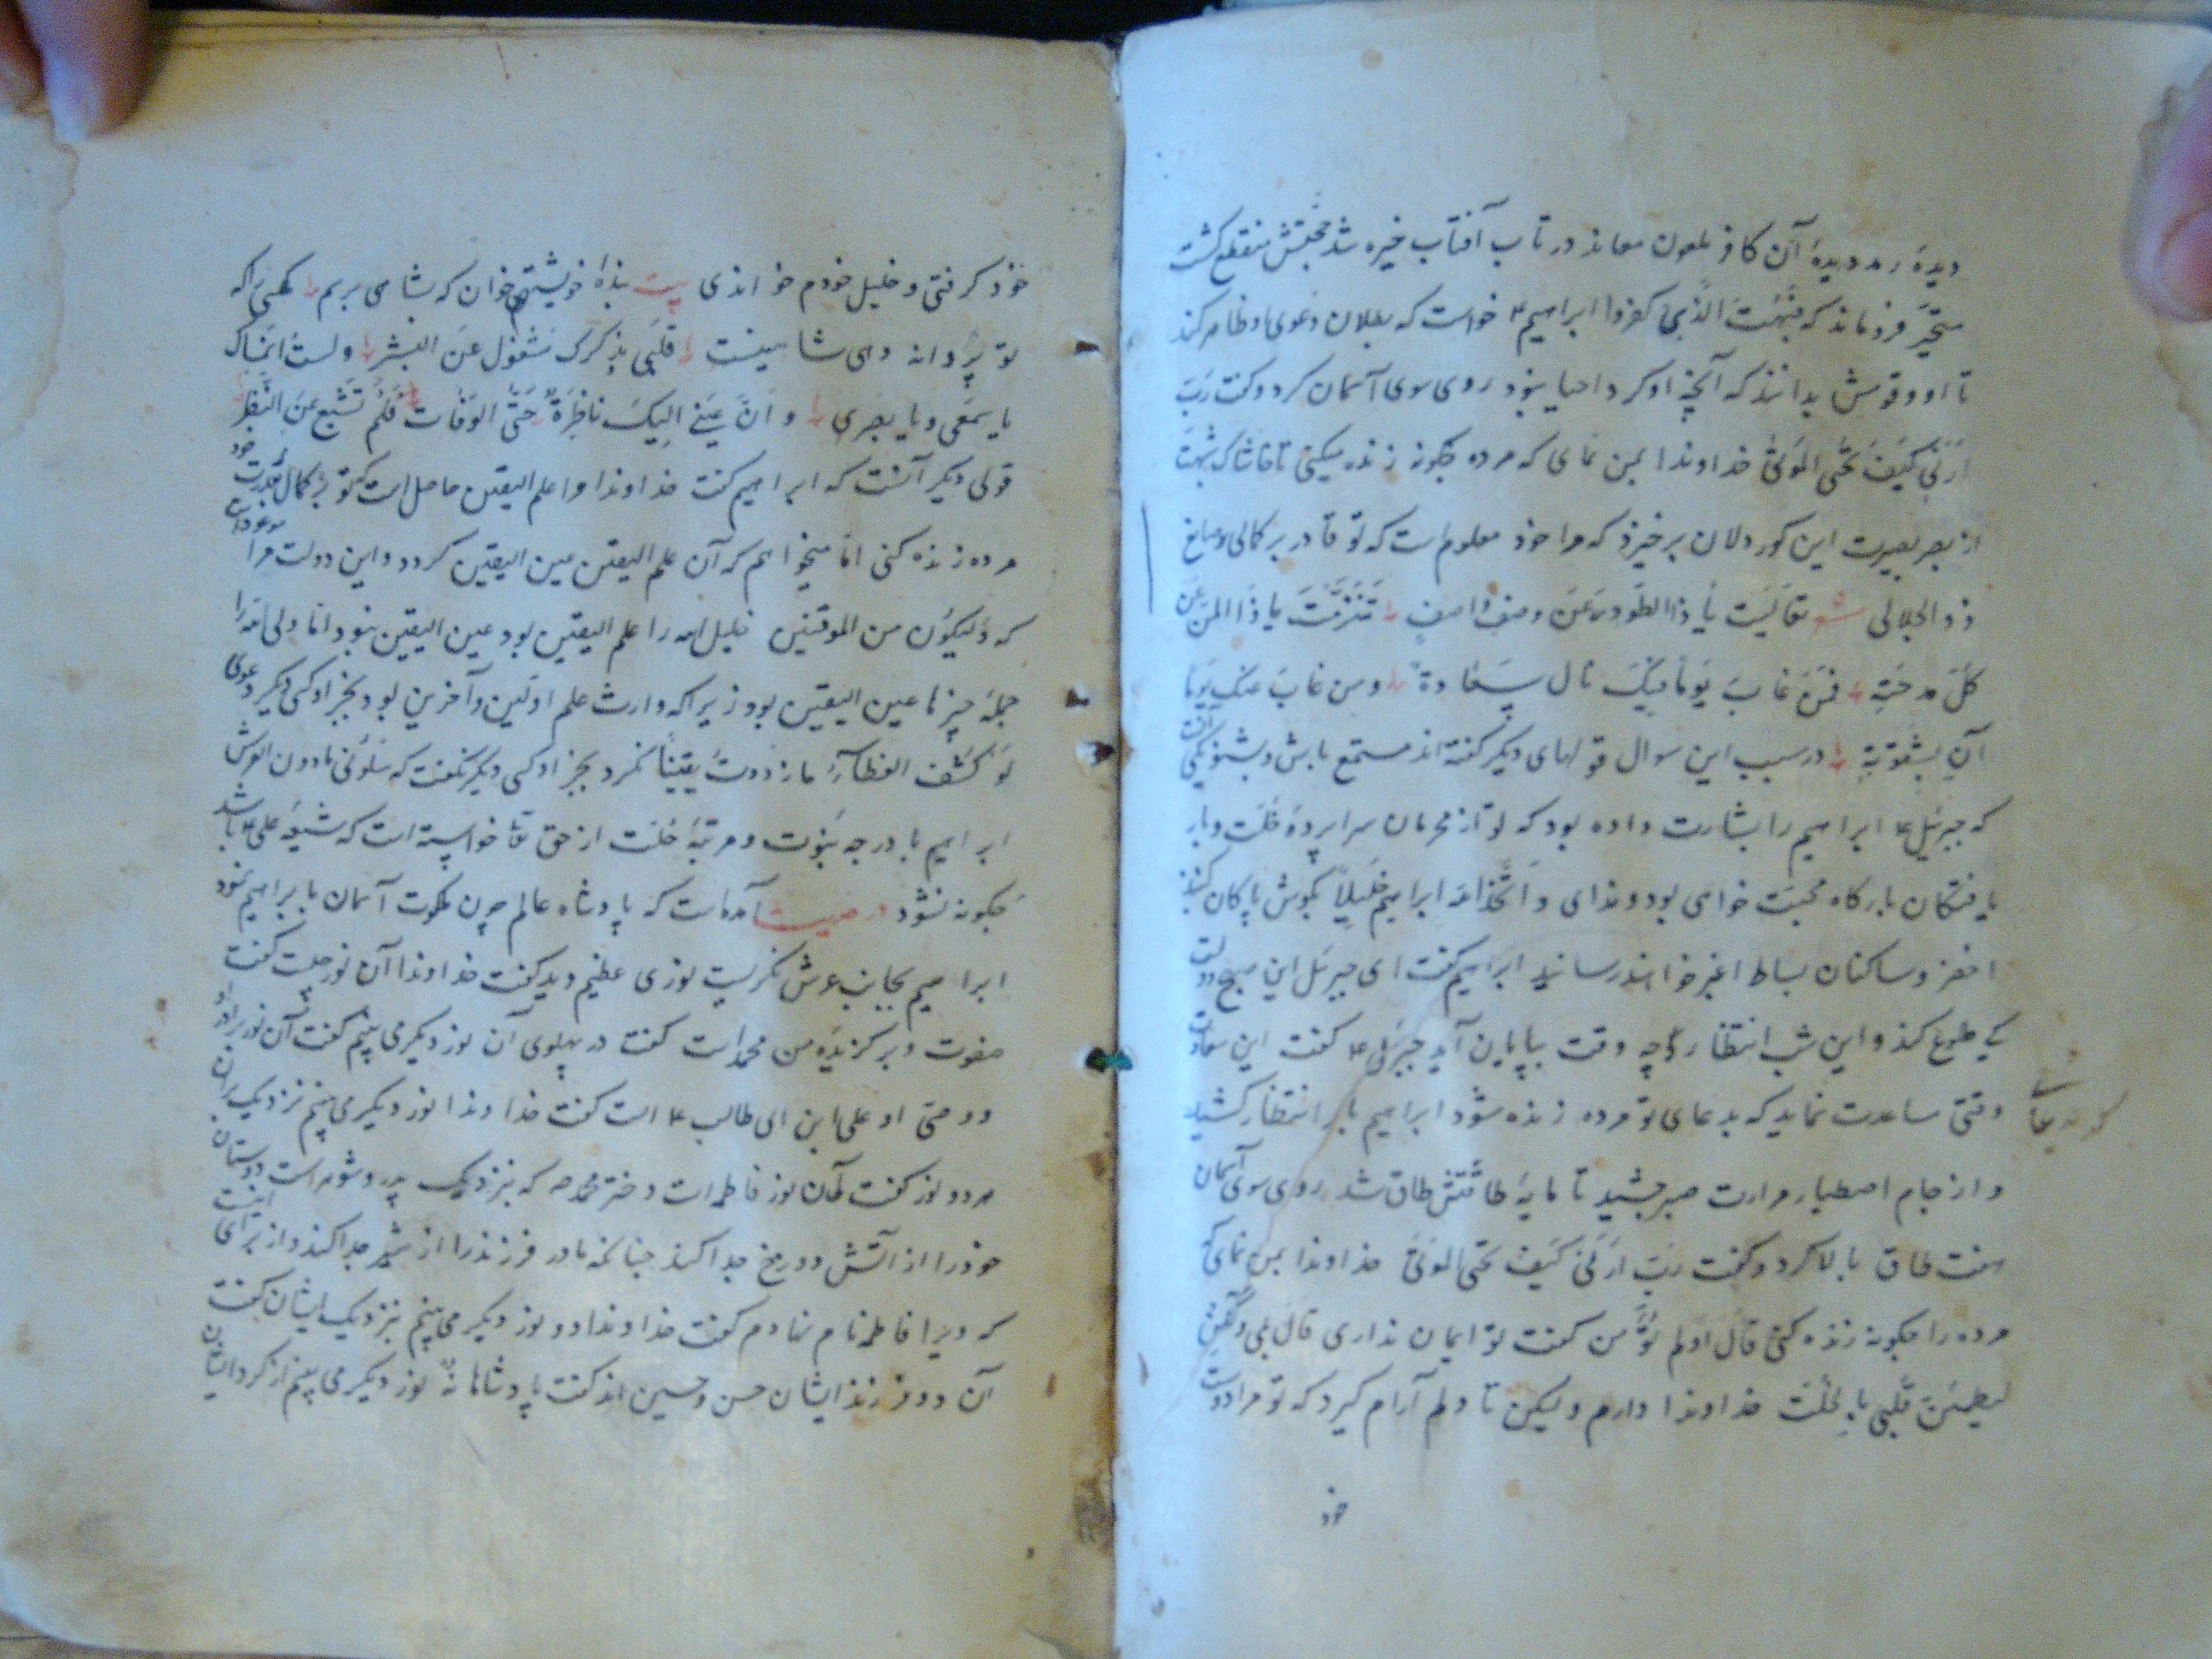 دیدهٔ رمد دیدهٔ آن کافر ملعون معاند در تاب آفتاب خیره شد حجتش منقطع کشت
متحیر فروماند که فبهت الذی کفر و ابراهیم ع خواست که بطلان دعوی او ظاهر کند
تا او و قومش بدانند که آنچه او کرد احیا نبود روی سوی آسمان کرد و کفت رَبّ
اَرِنی کَیفَ تُحیِ المَوتیٰ خداوندا بمن نمای که مرده چکونه زنده میکنی تا خاشاک شبهت
از بصر بصیرت این کوردلان برخیزد که مرا خود معلوم است که تو قادر بر کمالی و صانع
ذو الجلالی تعالیت یا ذا الطول عن وصف واصفٍ تنزهت یا ذا المن عن
کل مدحة فمن غاب یوما فیک نال سعادة ومن غاب عنک یوما
آن بشقوة در سبب این سوال قولهای دیکر کفته اند مستمع باش و بشنو یکی آنست
که جبرئیل ع ابراهیم را بشارت داده بود که تو از محرمان سراپردهٔ خلت و بار
یافتکان بارکاه محبت خواهی بود و ندای و اتخذ الله ابراهیم خلیلا بکوش پاکان کنبذ
اخضر و ساکنان بساط اغبر خواهند رسانید ابراهیم کفت ای جبرئیل این صبح دولت
کی طلوع کند و این شب انتظار چه وقت بپایان آید جبرئیل ع کفت این سعادت
وقتی مساعدت نماید که بدعای تو مرده زنده شود ابراهیم بار انتظار کشید
و از جام اصطبار مرارت صبر چشید تا مایهٔ طاقتش طاق شد روی سوی آسمان
هفت طاق بالا کرد و کفت ربّ ارنی کیف تحی الموتی خداوندا بمن نمای که
مرده را چکونه زنده کنی قال اولم تؤمن کفت تو ایمان نداری قال بلی ولکن
لیطمئن قلبی بالخلّت خداوندا دارم ولیکن تا دلم آرام کیرد که تو مرا دوست
خود
خود کرفتی و خلیل خودم خواندی بیت بندهٔ خویشتنم خوان که بشاهی برسم مکسی را که
تو پرواز دهی شاهینست قلبی بذکرک مشغول عن البشر ولست انساک
یا سمعی و یا بصری و ان عینی الیک ناظرة حتی الوفات فلم تشبع عن النظر
قولی دیکر آنست که ابراهیم کفت خداوندا مرا علم الیقین حاصل است که تو بر کمال قدرت خود
مرده زنده کنی اما میخواهم که آن علم الیقین عین الیقین کردد و این دولت مرا موعود است
که ولیکون من الموقنین خلیل الله را علم الیقین بود عین الیقین نبود اما ولی الله را
جمله چیزها عین الیقین بود زیرا که وارث علم اولین و آخرین بود بجز او کسی دیکر دعوی
لو کشف الغطاء ما ازددت یقینا نکرد بجز او کسی دیکر نکفت که سلونی ما دون العرش
ابراهیم با درجه نبوت و مرتبهٔ خلت از حق تعا خواسته است که شیعهٔ علی ع باشد
چکونه نشود در حدیث آمده است که پادشاه عالم چون ملکوت آسمان بابراهیم نمود
ابراهیم بجانب عرش نکریست نوری عظیم دید کفت خداوندا آن نور چیست کفت
صفوت و برکزیدهٔ من محمد است کفت در پهلوی آن نور دیکر می بینم کفت آن نور برادر
و وصی او علی ابن ابی طالب ع است کفت خداوندا نور دیکر می بینم نزدیک این
هر دو نور کفت آن نور فاطمه است دختر محمد ص که بنزدیک پدر و شوهر است دوستان
خود را از آتش دوزخ جدا کند چنانکه مادر فرزند را از شیر جدا کند و از برای اینست
که ویرا فاطمه نام نهادم کفت خداوندا دو نور دیکر می بینم بنزدیک ایشان کفت
آن دو فرزند ایشان حسن و حسین اند کفت پادشاها نه نور دیکر می بینم از کرد ایشان